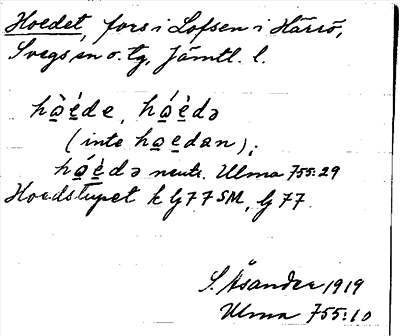 Hoedet, fors i Lofsen i Härrö,
Svegs sn o. tg, Jämtl. l.
hò̲é̲de, hó̲è̲də
(inte ho̲e̲dən);
hó̲è̲də neutr. Ulma 755:29
Hoedstupet k Gf 77 SM, Gf 77.
S. Åsander 1919
Ulma 755:10